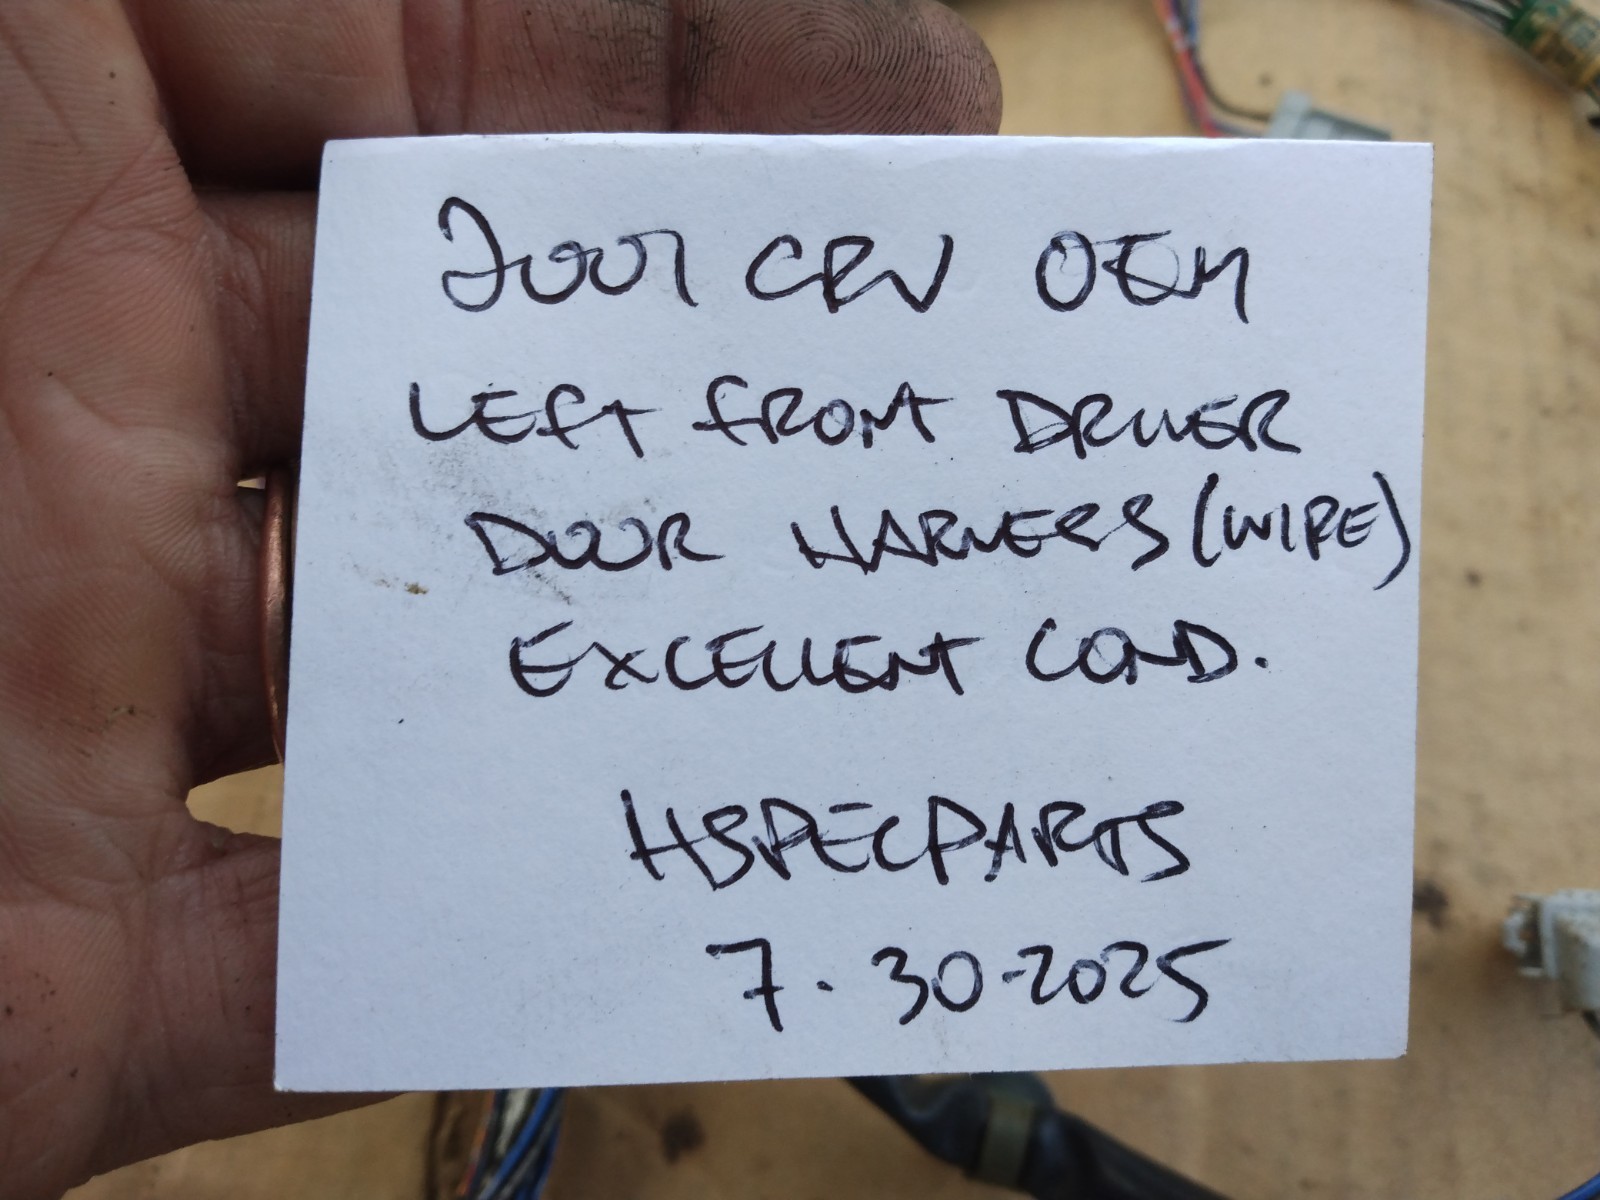 2001 CRV OEM
LEFT FRONT DRIVER
DOOR HARNESS (WIRE)
EXCELLENT COND.
HSPECPARTS
7.30-2025